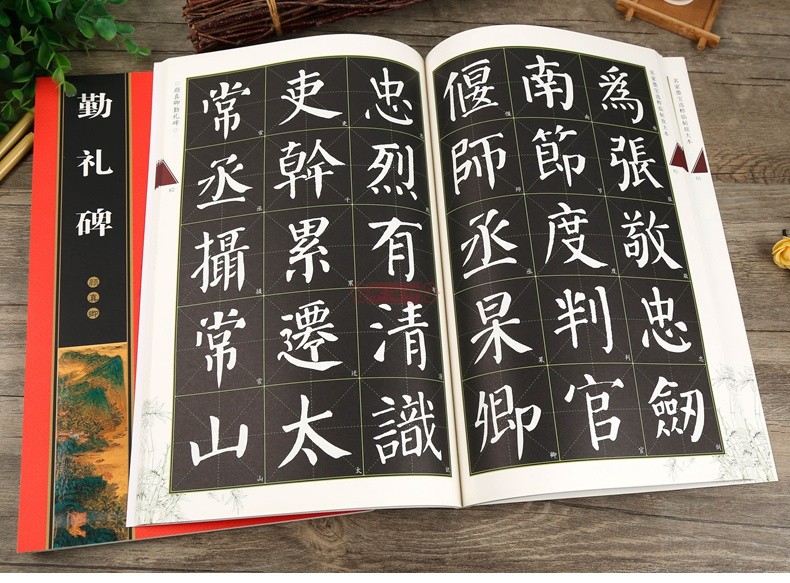 勤礼碑
顔真卿
爲張敬忠劒
南節度判官
偃師丞杲卿
忠烈有清識
吏幹累遷太
常丞攝常山
颜真卿勤礼碑